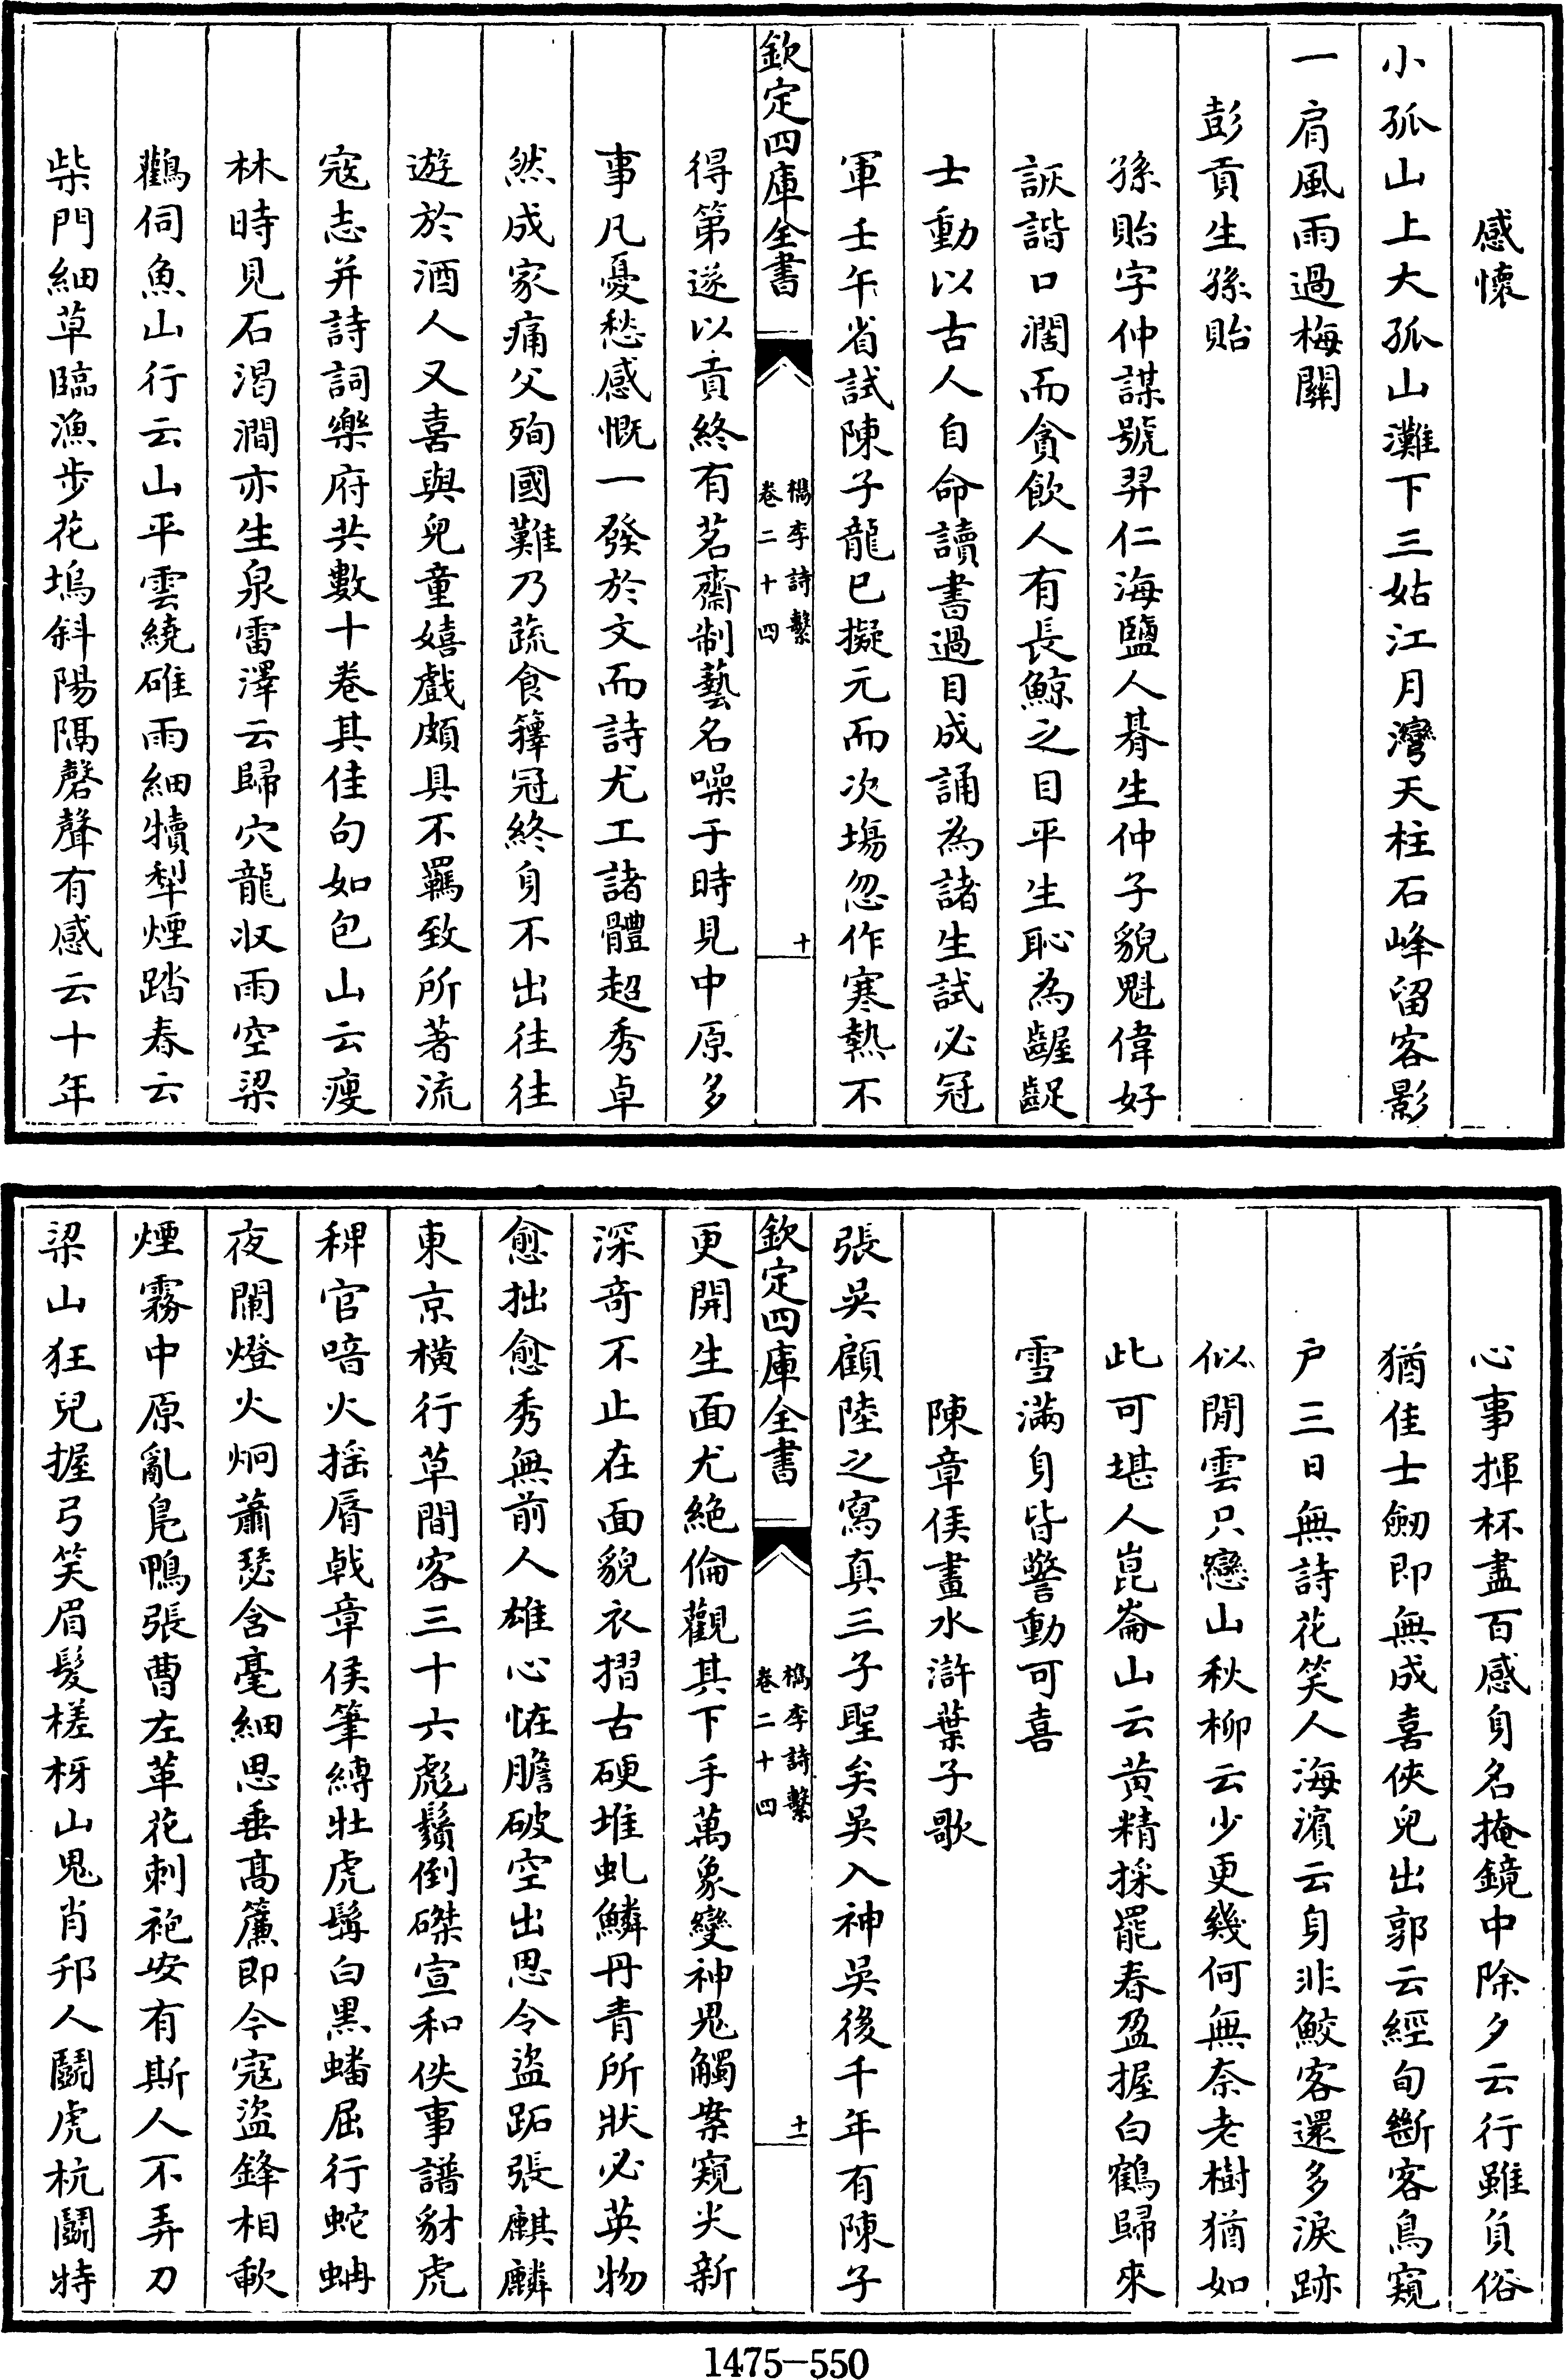 感懷
小孤山上大孤山灘下三姑江月灣天柱石峰留客影
一肩風雨過梅關
彭貢生孫貽
孫貽字仲謀號羿仁海鹽人朞生仲子貌魁偉好
詼諧口濶而貪飲人有長鯨之目平生恥為齷齪
士動以古人自命讀書過目成誦為諸生試必冠
軍壬午省試陳子龍已擬元而次塲忽作寒熱不
欽定四庫全書
檇李詩繫
卷二十四
十
得第遂以貢終有茗齋制藝名噪于時見中原多
事凡憂愁感慨一發於文而詩尤工諸體超秀卓
然成家痛父殉國難乃蔬食籜冠終身不出往往
遊於酒人又喜與兒童嬉戲頗具不羈致所著流
寇志并詩詞樂府共數十卷其佳句如包山云瘦
林時見石渴澗亦生泉雷澤云歸穴龍收雨空梁
鸛伺魚山行云山平雲繞碓雨細犢犁煙踏春云
柴門細草臨漁步花塢斜陽隔磬聲有感云十年
心事揮杯盡百感身名掩鏡中除夕云行雖負俗
猶佳士劒即無成喜俠兒出郭云經旬斷客鳥窺
户三日無詩花笑人海濱云身非鮫客還多淚跡
似閒雲只戀山秋柳云少更幾何無奈老樹猶如
此可堪人崑崙山云黃精採罷春盈握白鶴歸來
雪滿身皆警動可喜
陳章侯畫水滸葉子歌
張吳顧陸之寫真三子聖矣吳入神吳後千年有陳子
欽定四庫全書
檇李詩繫
卷二十四
十一
更開生面尤絶倫觀其下手萬象變神鬼觸案窺尖新
深奇不止在面貌衣摺古硬堆虬鱗丹青所狀必英物
愈拙愈秀無前人雄心恠膽破空出思令盜跖張麒麟
東京橫行草間客三十六彪鬚倒磔宣和佚事譜豺虎
稗官喑火摇唇戟章侯筆縛壯虎髯白黑蟠屈行蛇蚺
夜闌燈火炯蕭瑟含毫細思垂髙簾即今寇盜鋒相斫
煙霧中原亂鳬鴨張曹左革花刺袍安有斯人不弄刀
梁山狂兒握弓笑眉髮槎枒山鬼肖邘人鬭虎杭鬭特
1475-550